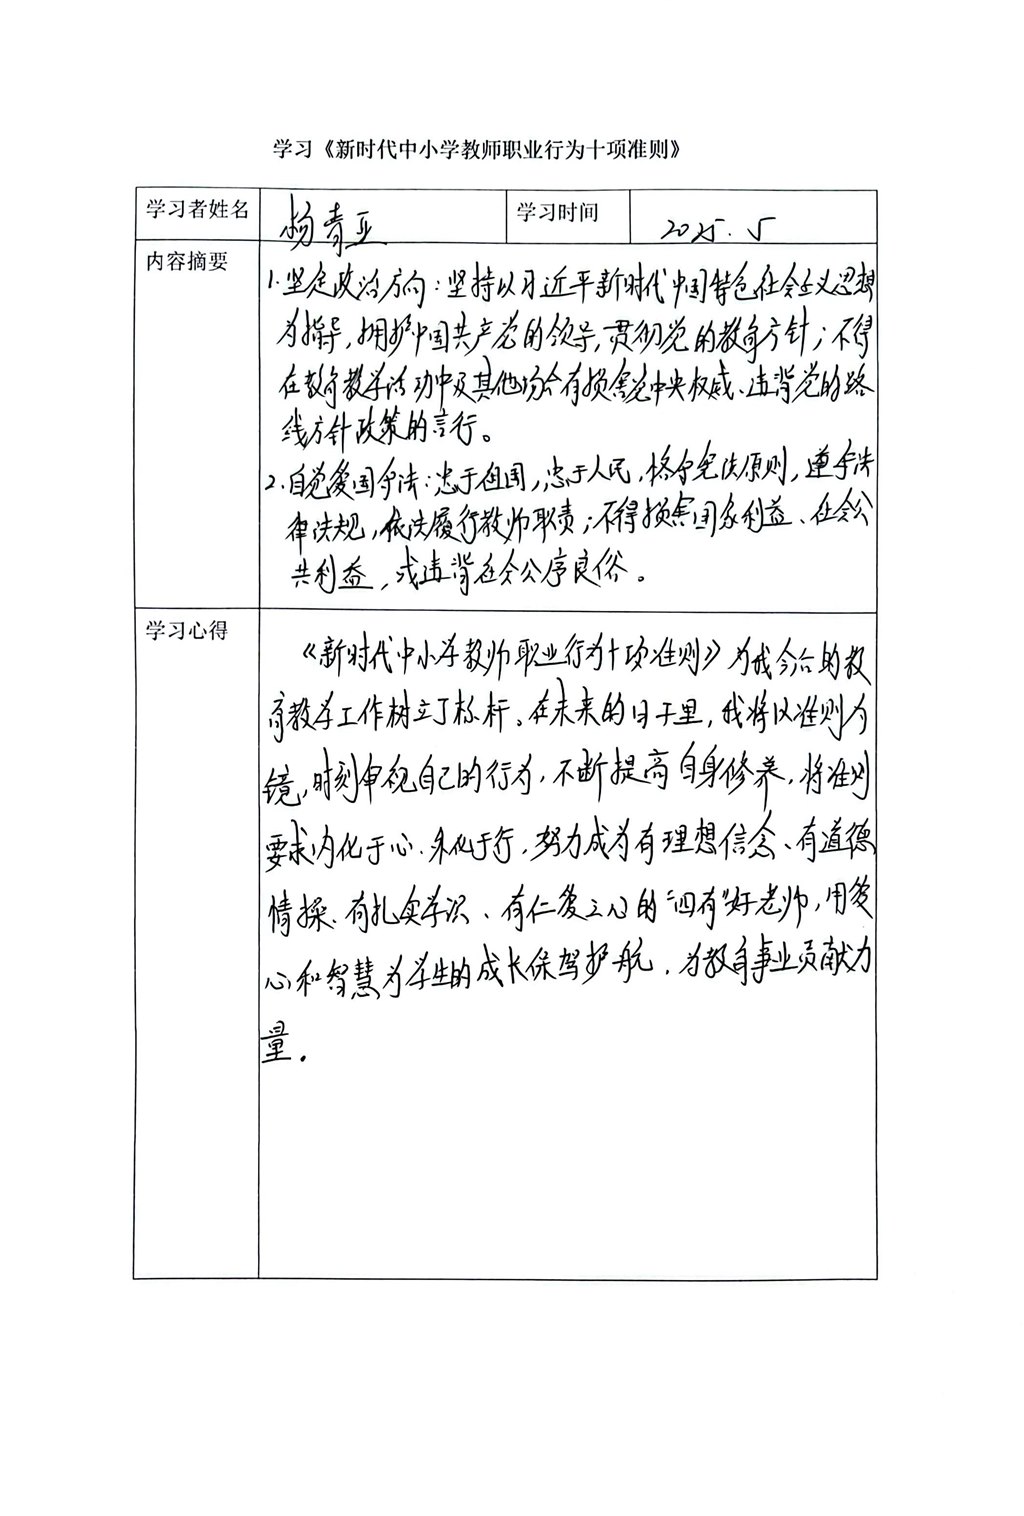 学习《新时代中小学教师职业行为十项准则》
学习者姓名 杨青亚 学习时间 2025.5
内容摘要
1.坚定政治方向:坚持以习近平新时代中国特色社会主义思想
为指导,拥护中国共产党的领导,贯彻党的教育方针;不得
在教育教学活动中及其他场合有损害党中央权威、违背党的路
线方针政策的言行。
2.自觉爱国守法:忠于祖国,忠于人民,恪守宪法原则,遵守法
律法规,依法履行教师职责;不得损害国家利益、社会公
共利益,或违背社会公序良俗。
学习心得
《新时代中小学教师职业行为十项准则》为我今后的教
育教学工作树立了标杆。在未来的日子里,我将以准则为
镜,时刻审视自己的行为,不断提高自身修养,将准则
要求内化于心、外化于行,努力成为有理想信念、有道德
情操、有扎实学识、有仁爱之心的“四有”好老师,用爱
心和智慧为学生的成长保驾护航,为教育事业贡献力
量.